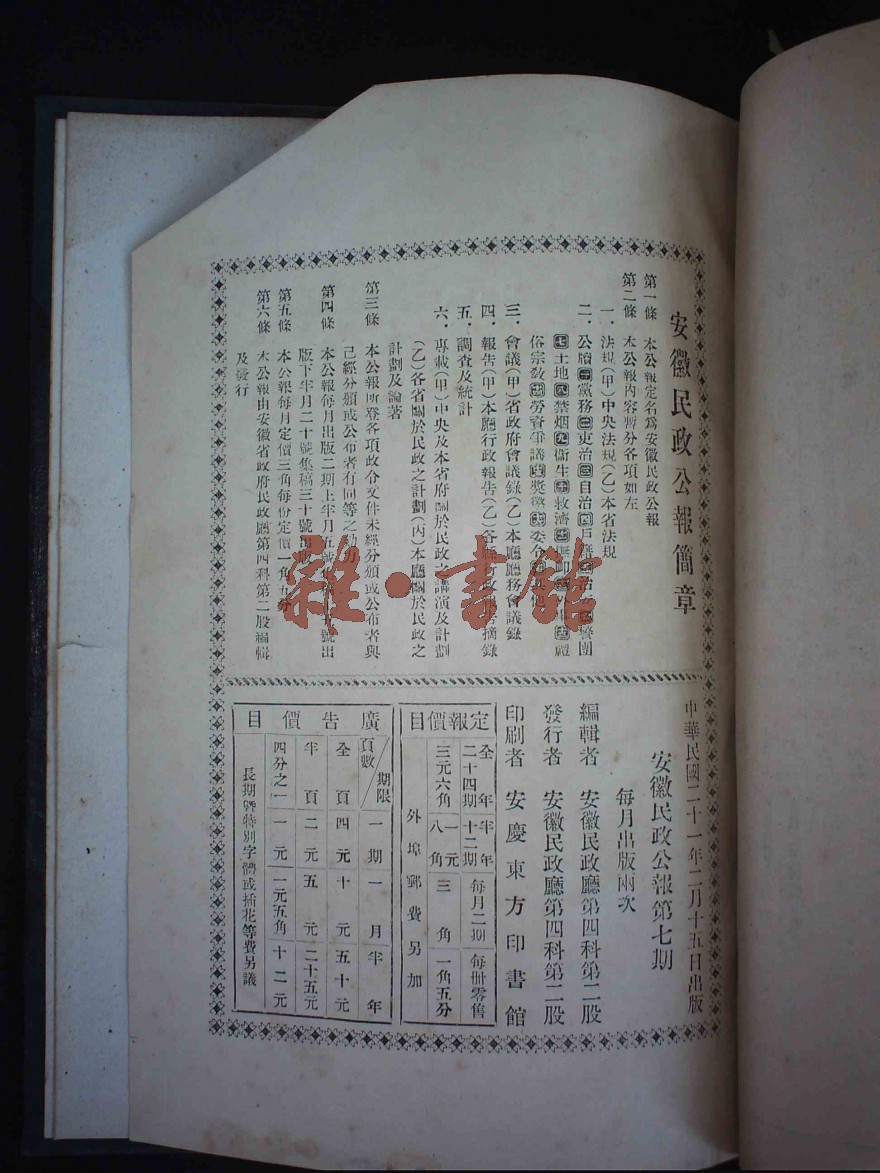 安徽民政公報簡章
第一條 本公報定名爲安徽民政公報
第二條 本公報內容暫分各項如左
一．法規(甲)中央法規(乙)本省法規
二．公牘㊀黨務㊁吏治㊂自治㊃戶籍㊄治㊅警團
㊆土地㊇禁烟㊈衛生㊉救濟 禮
俗宗敎 勞資爭議 獎懲 委令
三．會議(甲)省政府會議錄(乙)本廳廳務會議錄
四．報告(甲)本廳行政報告(乙)各 行政報告摘錄
五．調查及統計
六．專載(甲)中央及本省府關於民政之講演及計劃
(乙)各省關於民政之計劃(丙)本廳關於民政之
計劃及論著
第三條 本公報所登各項政令文件未經分頒或公布者與
已經分頒或公布者有同等之効力
第四條 本公報每月出版二期上半月五號 號出
版下半月二十號集稿三十號出版
第五條 本公報每月定價三角每份定價一角五分
第六條 本公報由安徽省政府民政廳第四科第二股編輯
及發行
中華民國二十一年二月十五日出版
安徽民政公報第七期
每月出版兩次
編輯者 安徽民政廳第四科第二股
發行者 安徽民政廳第四科第二股
印刷者 安慶東方印書館
定報價目
全年 半年 每月二期 每冊零售
二十四期 十二期
三元六角 一元八角 三角 一角五分
外埠郵費另加
廣告價目
期限 頁數 一期 一月 半年
全頁 四元 十元 五十元
半頁 二元 五元 二十五元
四分之一 一元 一元五角 十二元
長期曁特別字體或插花等費另議
雜·書館